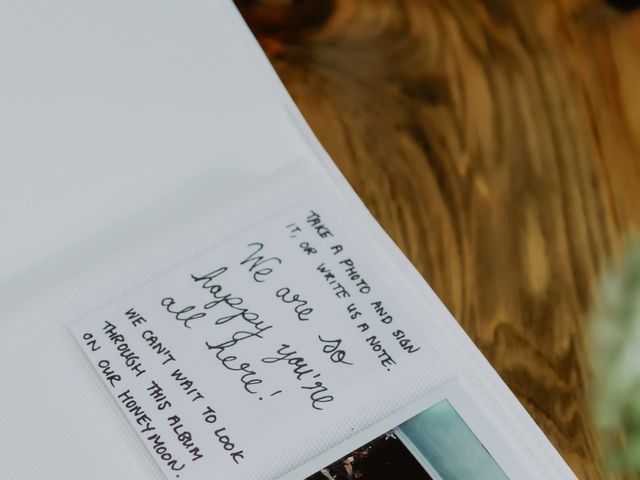 TAKE A PHOTO AND SIGN
IT, OR WRITE US A NOTE.
We are so
happy you're
all here!
WE CAN'T WAIT TO LOOK
THROUGH THIS ALBUM
ON OUR HONEYMOON.